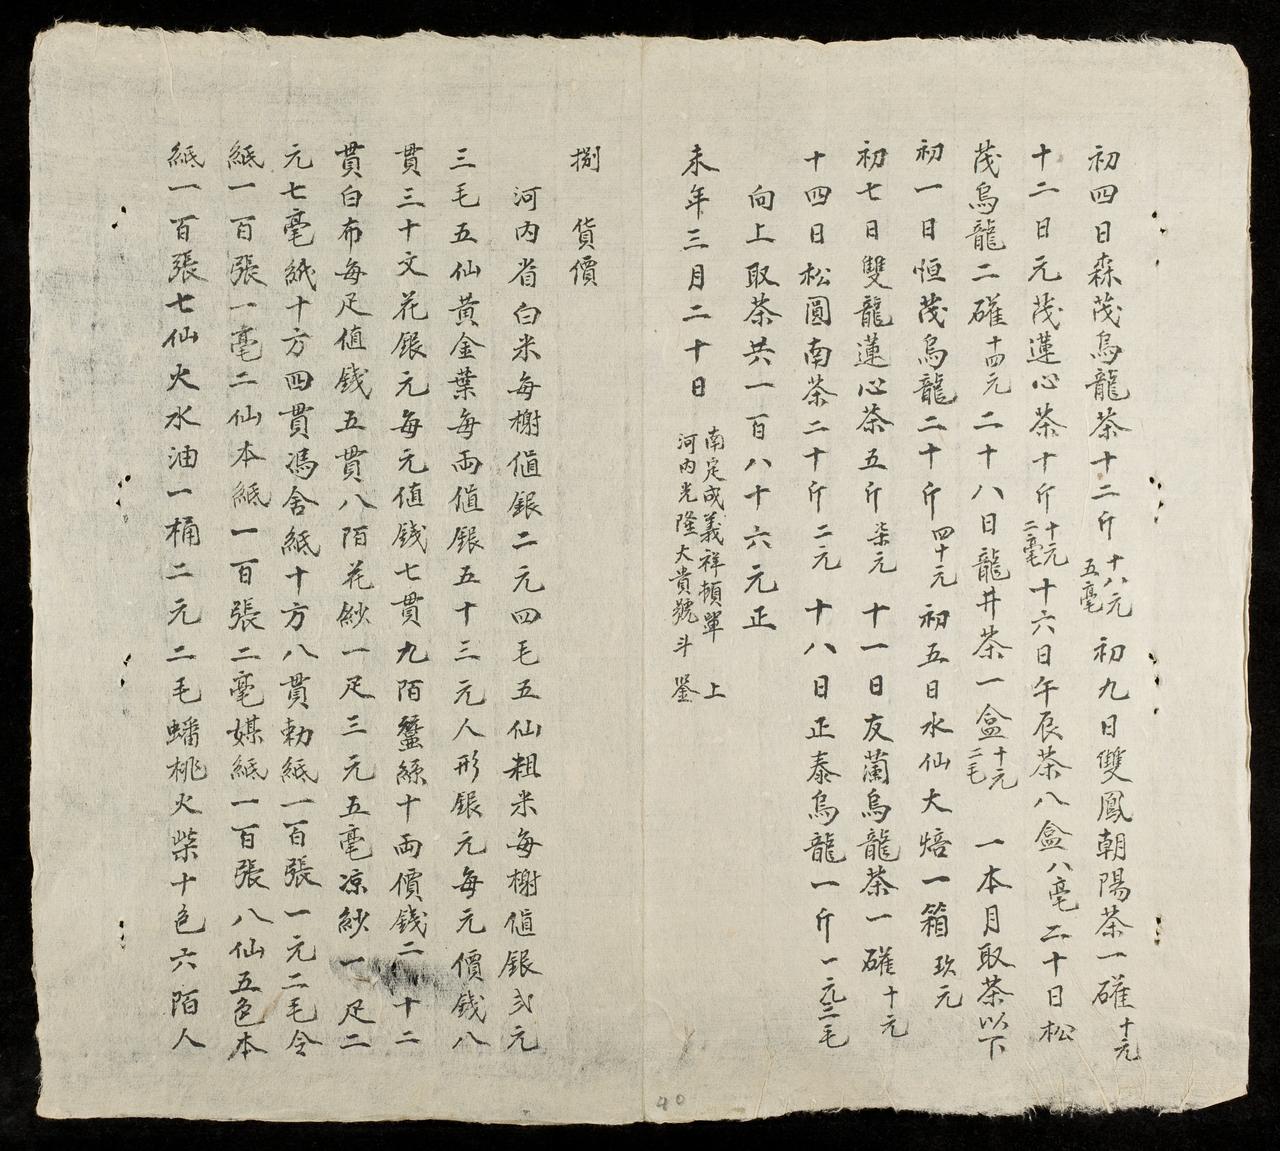 初四日森茂烏龍茶十二斤十八元五毫初九日雙鳳朝陽茶一確十元
十二日元茂蓮心茶十斤十元二毫十六日午辰茶八盒八毫二十日松
茂烏龍二確十四元二十八日龍井茶一盒十元二毛一本月取茶以下
初一日恒茂烏龍二十斤四十元初五日水仙大焙一箱玖元
初七日雙龍蓮心茶五斤柒元十一日友蘭烏龍茶一確十元
十四日松圓南茶二十斤二元十八日正泰烏龍一斤一元三毛
向上取茶共一百八十六元正
未年三月二十日南定成義祥頓單上
河內光隆大貴號斗鑒
捌 貨價
河內省白米每榭値銀二元四毛五仙粗米每榭値銀弍元
三毛五仙黃金葉每両値銀五十三元人形銀元每元價錢八
貫三十文花銀元每元值錢七貫九陌蠶絲十両價錢二十二
貫白布每疋值錢五貫八陌花紗一疋三元五毫凉紗一疋二
元七毫紙十方四貫馮舍紙十方八貫勅紙一百張一元二毛令
紙一百張一毫二仙本紙一百張二毫媒紙一百張八仙五色本
紙一百張七仙火水油一桶二元二毛蟠桃火柴十色六陌人
40